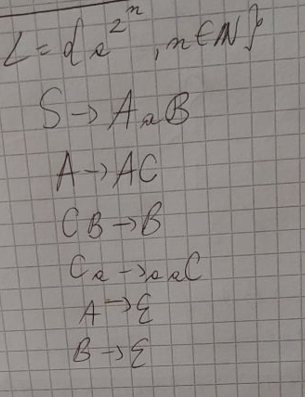 L = { a^{2^n}, n ∈ ℕ }
S → AaB
A → AC
CB → B
Ca → aaC
A → ε
B → ε